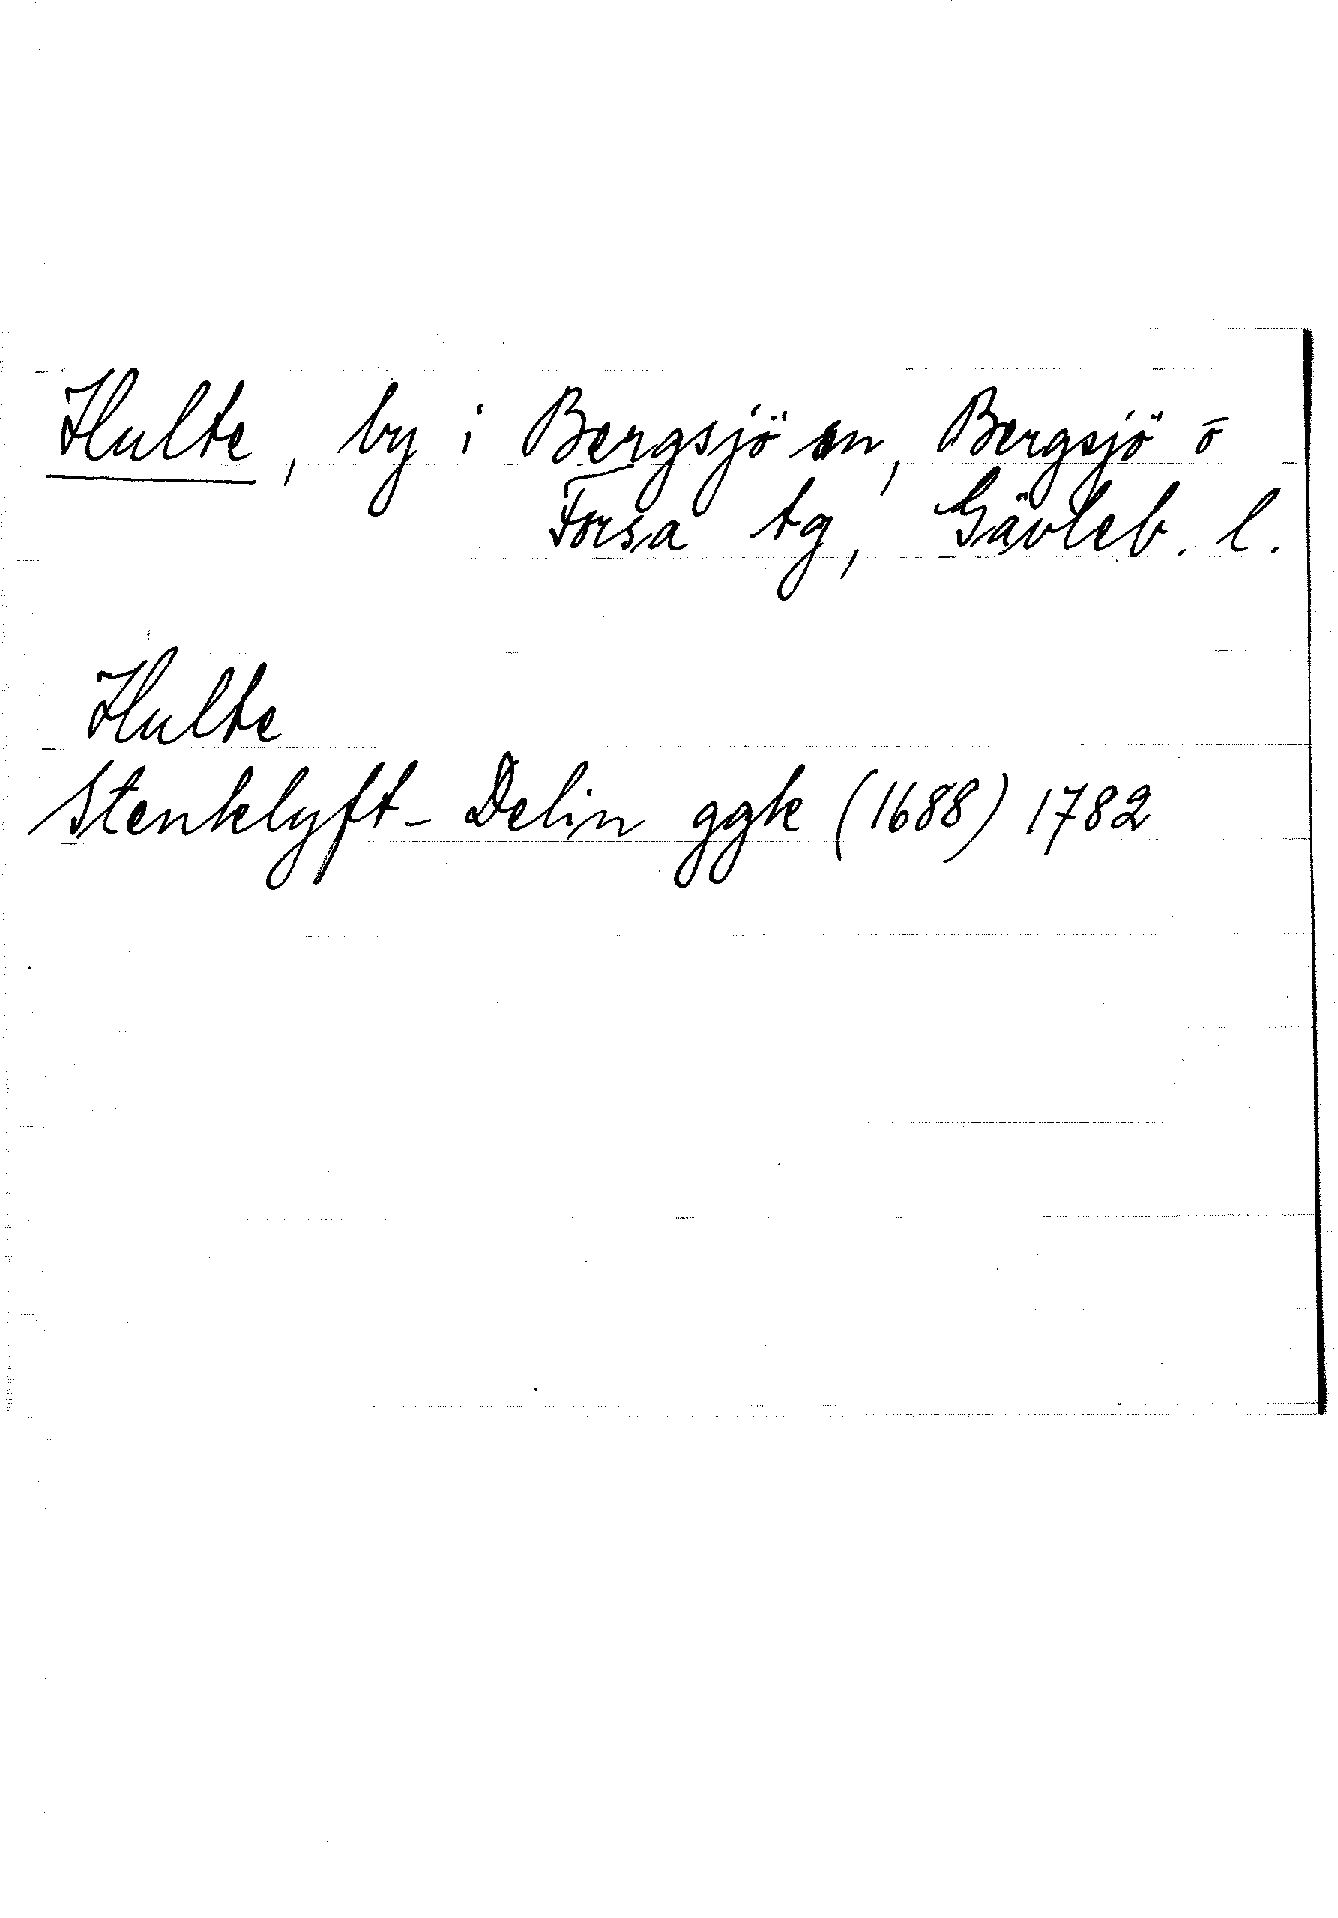 Hulte, by i Bergsjö sn, Bergsjö o
Forsa tg, Gävleb. l.
Hulte
Stenklyft - Delin ggk (1688) 1782